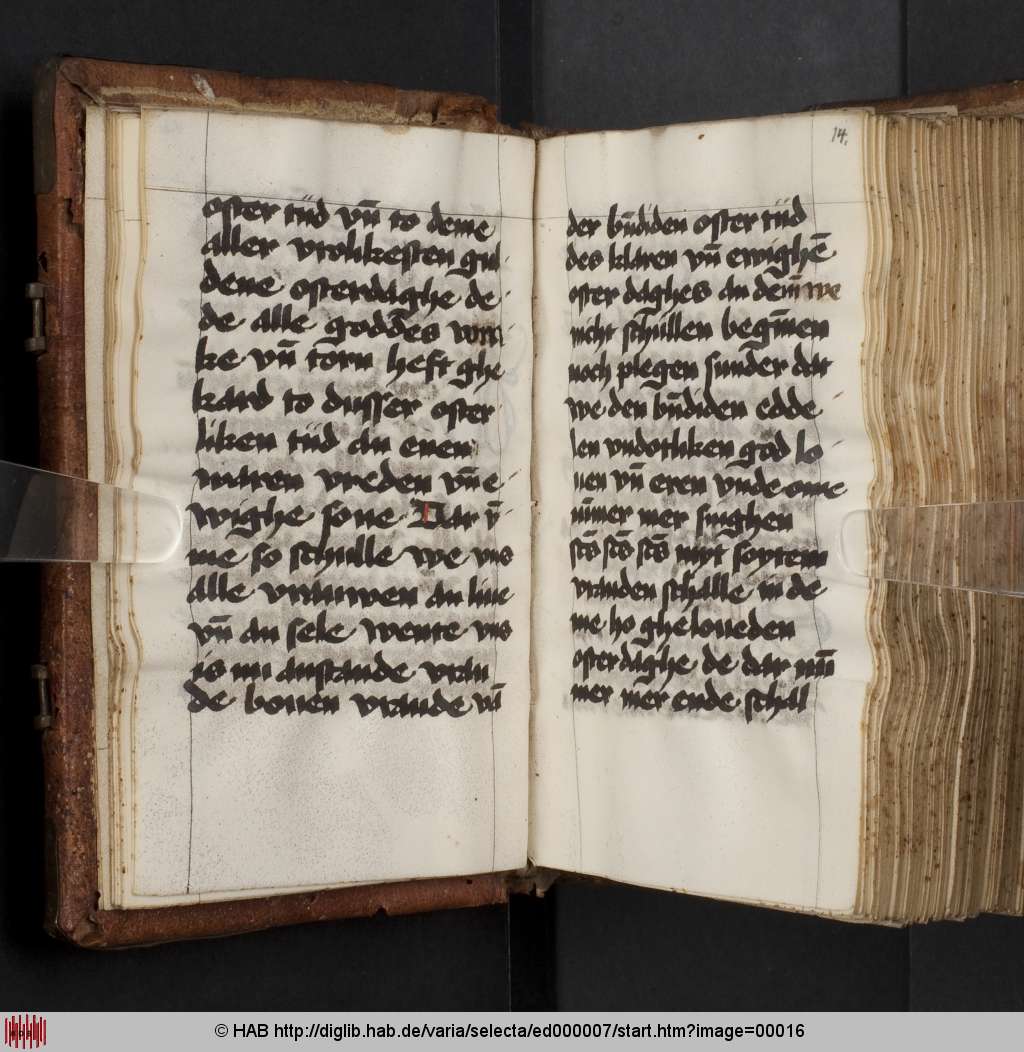 oster tiid vn̄ to deme
aller vrolikesten gul
dene osterdaghe de
de alle goddes wra
ke vn̄ torn heft ghe
kard to dusser oster
liken tiid an enen
waren vreden vn̄ e
wighe sone Dar v̄
me so schulle we vns
alle vrauwen an liue
vn̄ an sele wente vns
is nu anstande vrau
de bouen vraude vn̄
14.
der bundiden oster tiid
des klaren vn̄ ewighē
oster daghes an dem we
nicht schullen begīnen
noch plegen sunder dat
we den būdiden edde
len vndotliken god lo
uen vn̄ eren vnde ome
nūmer mer singhen
scs̄ scs̄ scs̄ myt soytem
vrauden schalle in de
me ho gheloueden
osterdaghe de dar num
mer mer ende schal
© HAB http://diglib.hab.de/varia/selecta/ed000007/start.htm?image=00016